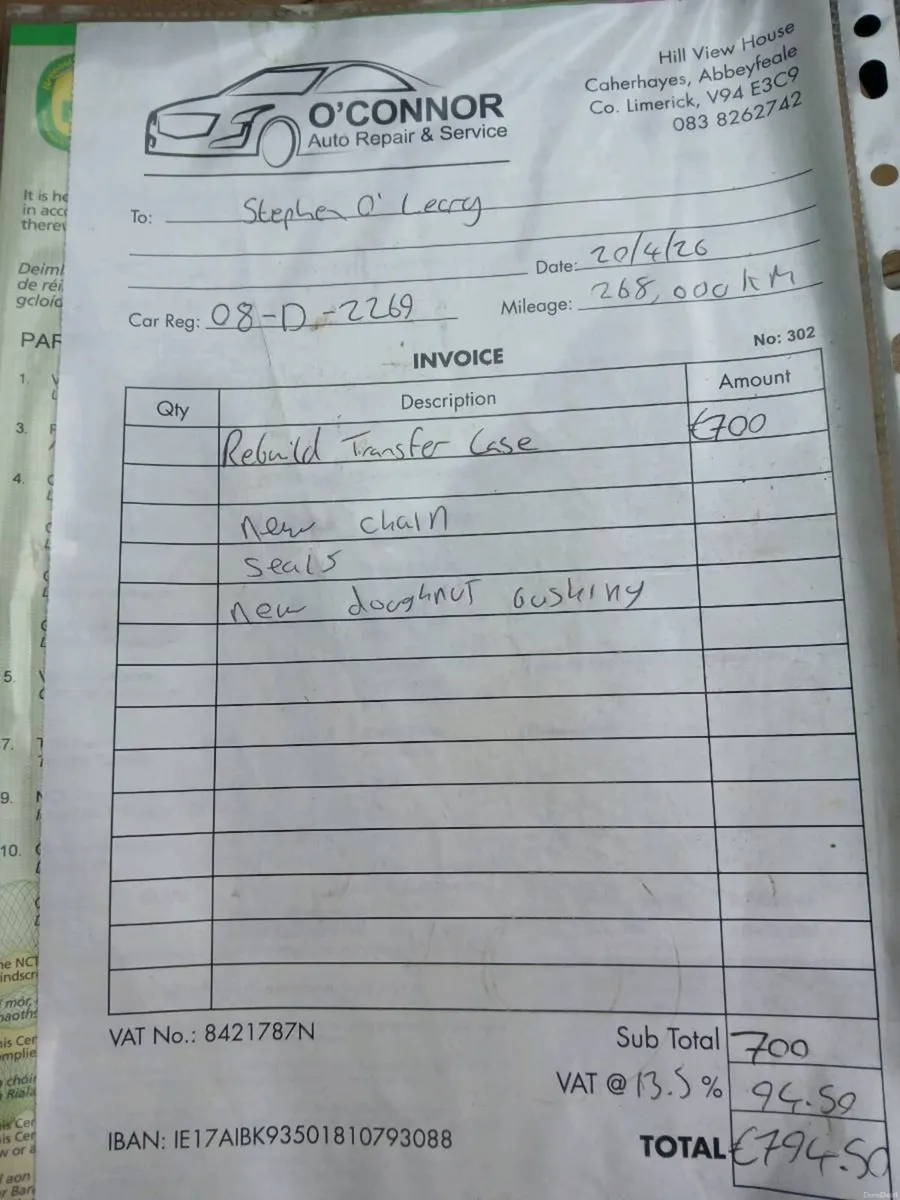 O'CONNOR
Auto Repair & Service
Hill View House
Caherhayes, Abbeyfeale
Co. Limerick, V94 E3C9
083 8262742
To: Stephen O' Leary
Date: 20/4/26
Car Reg: 08-D-2269
Mileage: 268,000 KM
INVOICE
No: 302
Qty Description Amount
Rebuild Transfer Case €700
new chain
seals
new doughnut bushing
VAT No.: 8421787N
Sub Total 700
VAT @ 13.5 % 94.50
IBAN: IE17AIBK93501810793088
TOTAL €794.50
It is
in
Deiml
de réi
gcloíd
PAR
1.
3.
4.
5.
7.
9.
10.
NCT
mór,
Riala
aon
DoneDeal